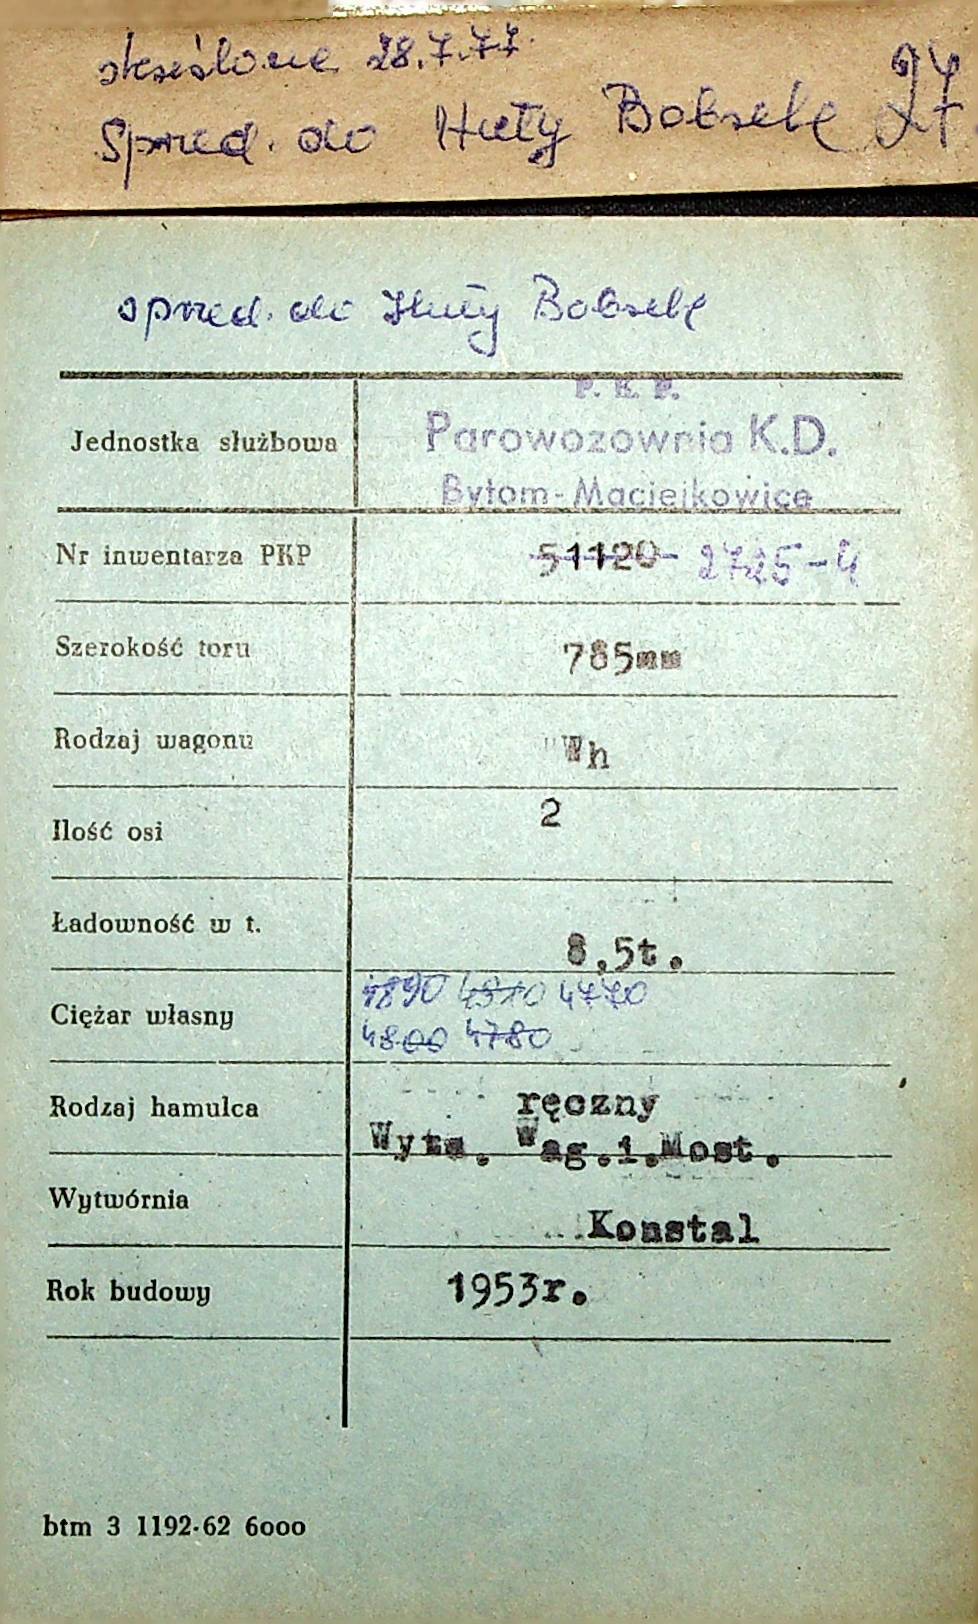 skreślone 28.7.77.
Sprzed. do Huty Bobrek 27
sprzed. do Huty Bobrek
P. K. P.
Jednostka służbowa Parowozownia K.D.
Bytom-Maciejkowice
Nr inwentarza PKP 51120 2725-4
Szerokość toru 785mm
Rodzaj wagonu Wh
Ilość osi 2
Ładowność w t. 8,5t.
Ciężar własny 4890 4810 4770
4800 4780
Rodzaj hamulca ręczny
Wytw. Wag.i.Most.
Wytwórnia Konstal
Rok budowy 1953r.
btm 3 1192-62 6000